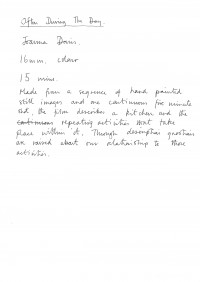 Often During The Day.
Joanna Davis.
16mm. colour
15 mins.
Made from a sequence of hand painted
still images and one continuous five minute
shot, the film describes a kitchen and the
continuous repeating activities that take
place within it. Through description questions
are raised about our relationship to these
activities.